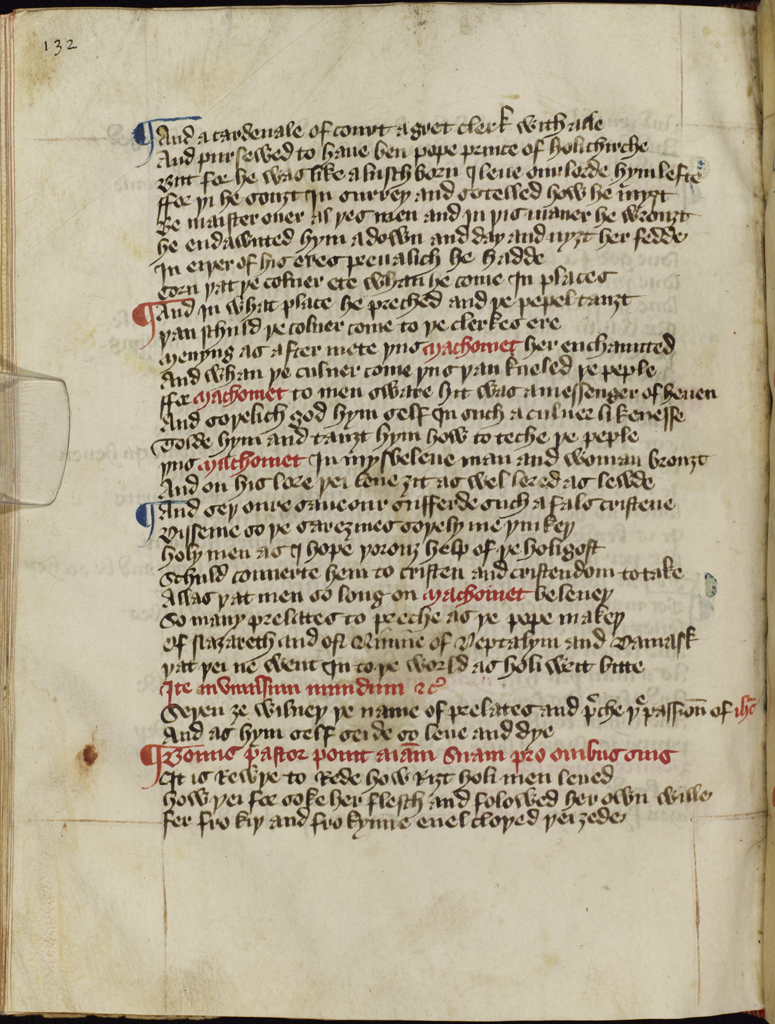 132
And a cardenale of court a gret clerk with alle
And pursewed to haue ben pope prince of holichirche
But for he was like a lussh born I leue our lorde hym lefte
ffor þi he souȝt In surrey and sotelled how he myȝt
Be maister ouer al þes men and in þis maner he wrouȝt
he endawnted hym a dowu and day and nyȝt her fedde
In eiþer of his eres preualich he hadde
Corn þat þe coluer ete whan he come In places
And in what place he preched and þe pepel tauȝt
þan schuld þe coluer come to þe clerkes ere
Menyng as after mete þus Machomet her enchaunted
And whan þe culuer come þus þan kneled þe peple
ffor Machomet to men sware hit was a messenger of heuen
And soþelich god hym self In such a culuer likenesse
Tolde hym and tauȝt hym how to teche þe peple
þus Machomet In mysbeleue man and woman brouȝt
And on his lore þei leue ȝit as wel lered as lewde
And seþ oure saueour sufferde such a fals cristene
Disseiue so þe sarezines soþely me þinkeþ
holy men as I hope þorouȝ help of þe holigost
Schuld conuerte hem to cristen and cristendom to take
Allas þat men so loung on Machomet beleueþ
So many prelates to preche as þe pope makeþ
Of Nazareth and of Niniue of Neptalym and Damask
þat þei ne went In to þe world as holi writ bitte
Ite in vniuersum mundum &c
Seþen ȝe wilneþ þe name of prelates and p̃che þe passion̄ of ihc̄
And as hym self seide so leue and dye
Bonus pastor ponit aīam suam pro ouibus suis
It is Rewþe to Rede how Riȝt holi men leued
how þei for soke her flesch and folowed her own wille
fer fro kiþ and fro kynne euel cloþed þei ȝede